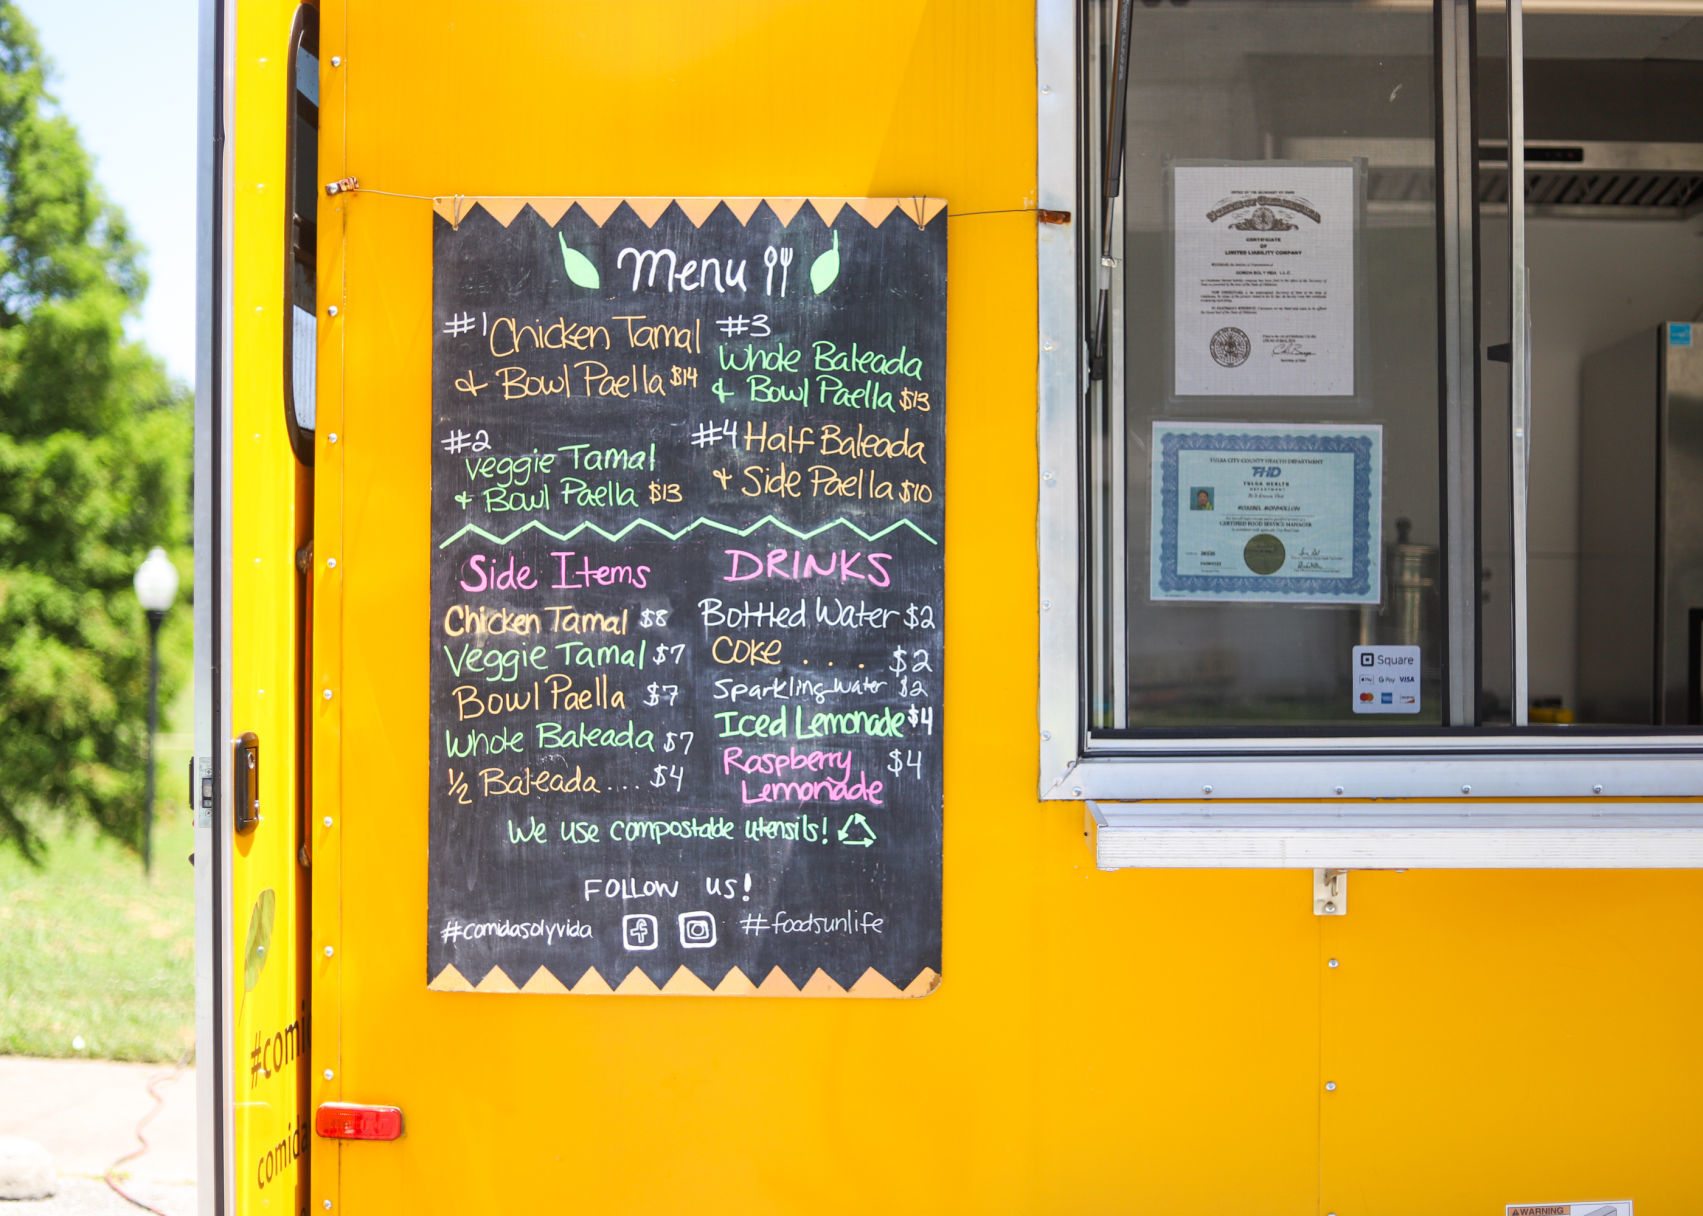 Menu
#1 Chicken Tamal
& Bowl Paella $14
#2
Veggie Tamal
& Bowl Paella $13
#3
Whole Baleada
& Bowl Paella $13
#4 Half Baleada
& Side Paella $10
Side Items
Chicken Tamal $8
Veggie Tamal $7
Bowl Paella $7
Whole Baleada $7
1/2 Baleada.... $4
DRINKS
Bottled Water $2
COKE . . . . $2
Sparkling water $2
Iced Lemonade $4
Raspberry $4
Lemonade
We use compostable utensils!
FOLLOW us!
#comidasolyvida #foodsunlife
#comi
comida
CERTIFICATE
OF
LIMITED LIABILITY COMPANY
TULSA CITY-COUNTY HEALTH DEPARTMENT
THD
TULSA HEALTH
DEPARTMENT
CERTIFIED FOOD SERVICE MANAGER
Square
Pay G Pay VISA
WARNING